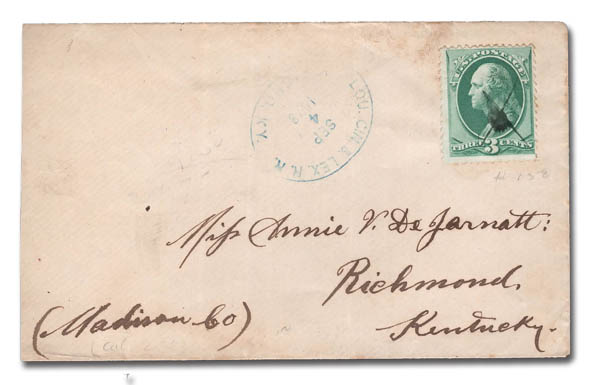 U.S. POSTAGE
THREE 3 CENTS
LOU. CIN. & LEX. R. R.
SEP
4
KY.
Miss Annie V. De Jarnatt:
Richmond,
Kentucky.
(Madison Co)